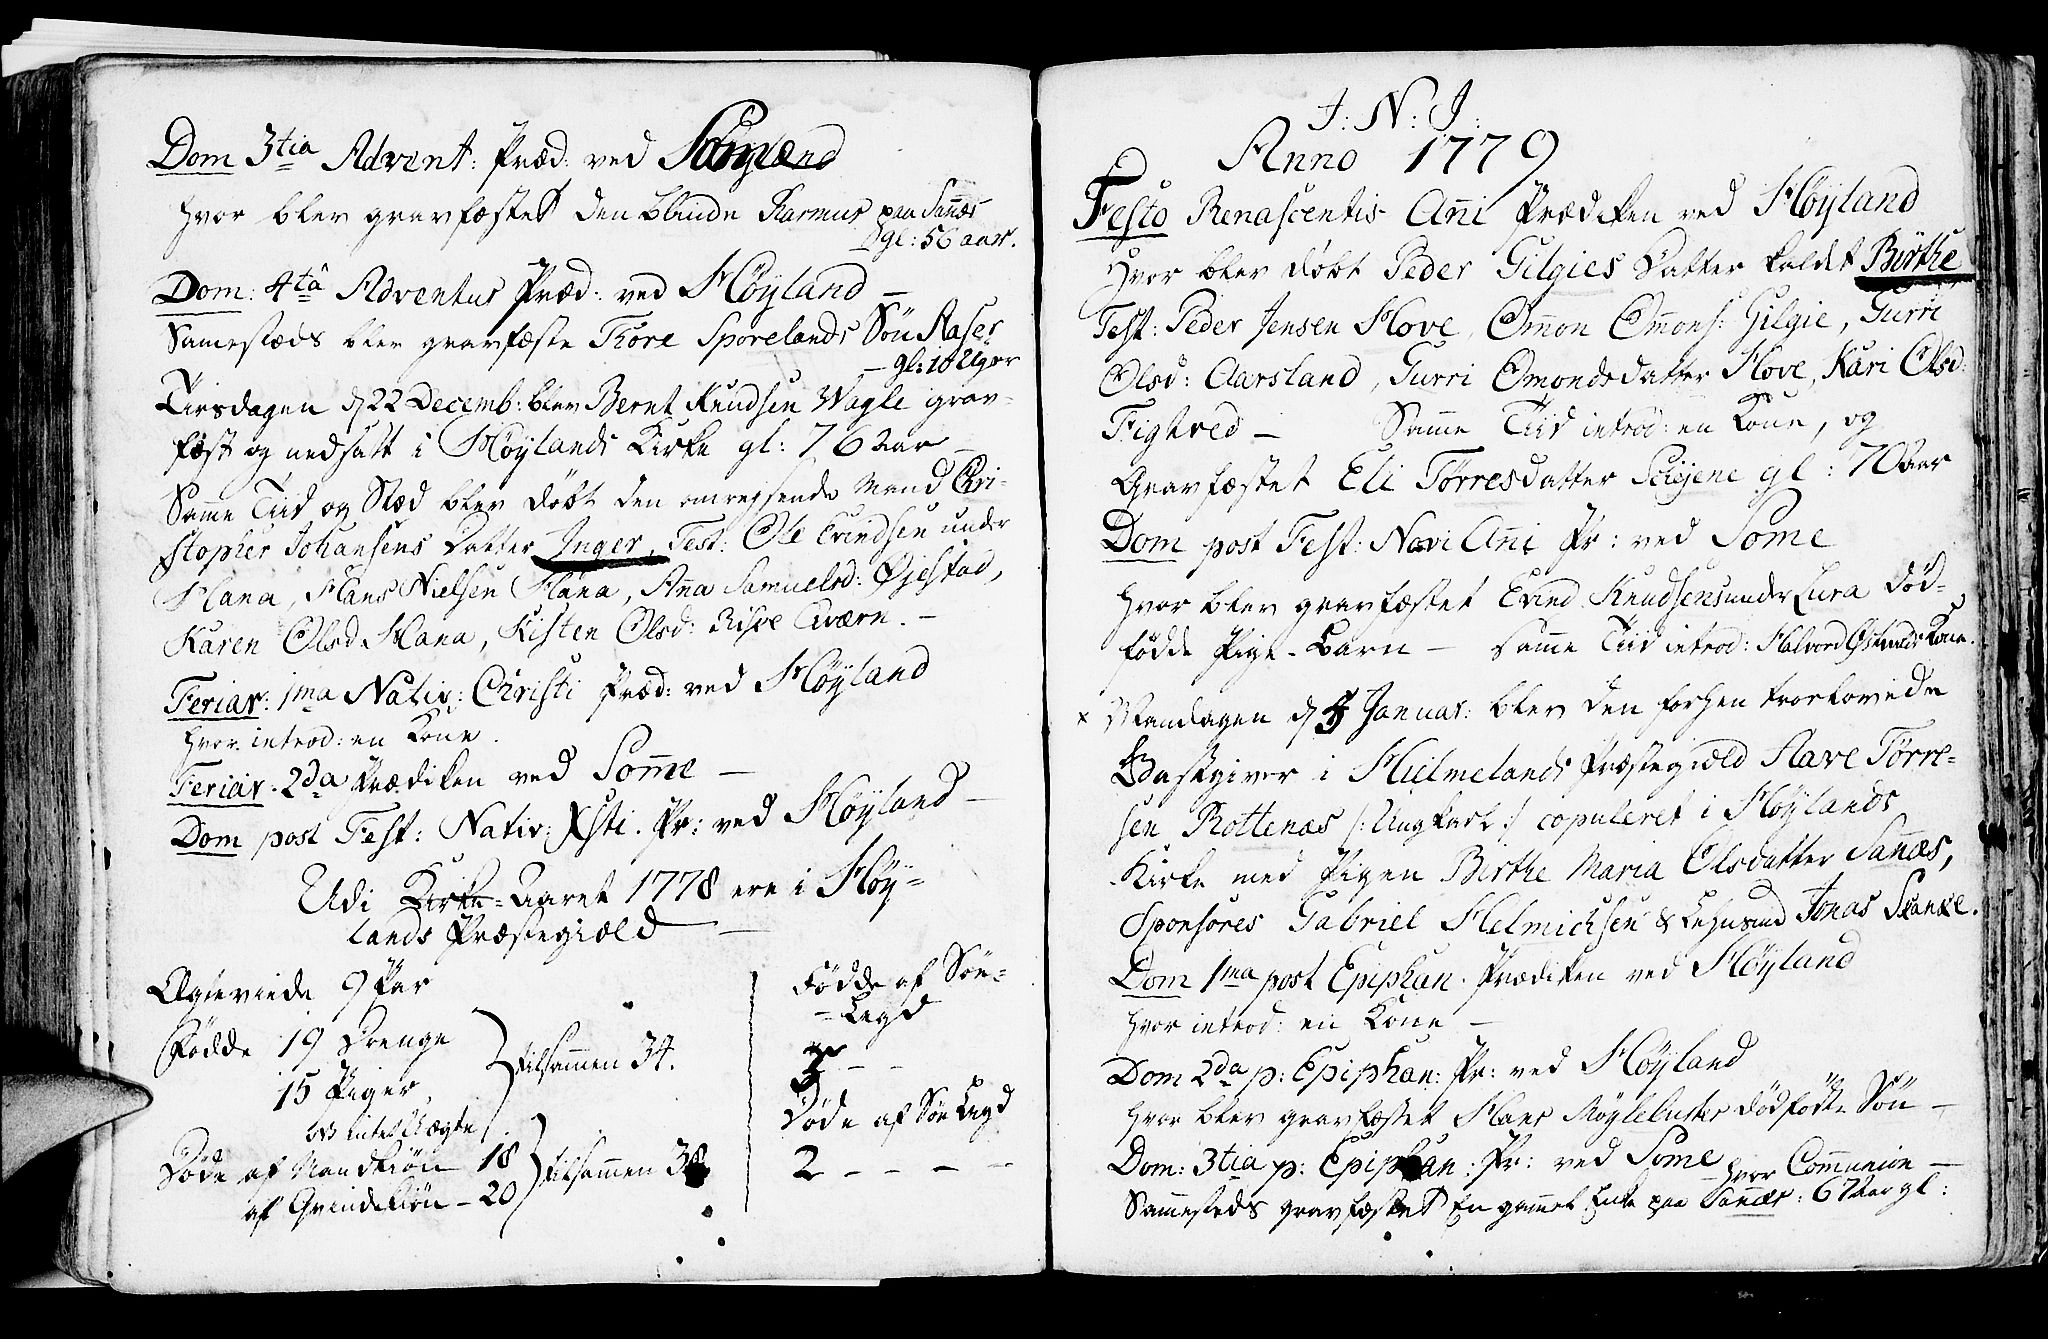 Dom 3tia Advent: Præd: ved
hvor blev gravfæstet den blinde Rasmus paa Sañæs
gl: 56 aar.
Dom: 4ta Adventus Præd: ved Høyland –
Samestæds blev gravfæste Tore Sporelands Søn Aaser
– gl: 18 Uger
Tirsdagen d 22 Decemb: blev Bernt Knudsen Wagle grav-
fæst og nedsatt i Høylands Kirke gl: 76 Aar –
Same Tiid og Stæd blev døbt den omreysende Mand Chri-
stopher Johansens Datter Inger, Test: Ole Evindsen under
Hana, Hans Nielsen Hana, Aña Samuelsd: Øiestad,
Karen Olsd Hana, Kisten Olsd: Riske Qværn. –
Feriar: 1ma Nativ: Christi Præd: ved Høyland
hvor introd: en Kone.
Feriar. 2da Prædiken ved Some –
Dom post Fest: Nativ: Xsti. Pr: ved Høyland –
Udi Kirke-Aaret 1778 ere i Høy-
lands Præstegiæld –
Ægteviede 9 Par
Fødde 19 Drenge
15 Piger
tilsamen 34.
Døde af Mandkiøn 18
af Qvindekiøn – 20
tilsamen 38
Fødde af Søe-
-Legd
3 – –
Døde af Søe Legd
2 – – – –
J: N: J:
Anno 1779
Festo Renascentis Añi Prædiken ved Høyland
hvor blev døbt Peder Gilgies Datter kaldet Birthe
Test: Peder Jensen Hove, Omon Omons: Gilgie, Gurri
Olsd: Aarsland, Gurri Omondsdatter Hove, Kari Olsd:
Figtved – Same Tiid introd: en Kone, og
Gravfæstet Eli Tørresdatter Schjene gl: 70 Aar
Dom post Fest: Novi Añi Pr: ved Some
hvor blev gravfæstet Evind Knudsens under Lura død-
fødde Pige-Barn – same Tiid introd: Halvord Østraads Kone.
x Mandagen d 4 Januar: blev den forhen trorlovede
Gastgiver i Hielmelands Præstegiæld Aave Tørre-
sen Rottenæs /: Ungkarl :/ copuleret i Høylands
Kirke med Pigen Birthe Maria Olsdatter Sañæs,
Sponsores Gabriel Helmichsen & Lehnsmd Jonas Skanke.
Dom 1ma post Epiphan. Prædiken ved Høyland
hvor introd: en Kone –
Dom 2da p: Epiphan: Pr: ved Høyland
hvor blev gravfæstet Hans dødfødte Søn –
Dom: 3tia p: Epiphan: Pr: ved Some hvor Comunion –
Samesteds gravfæstet En gamel Enke paa Sañæs: 67 Aar gl: